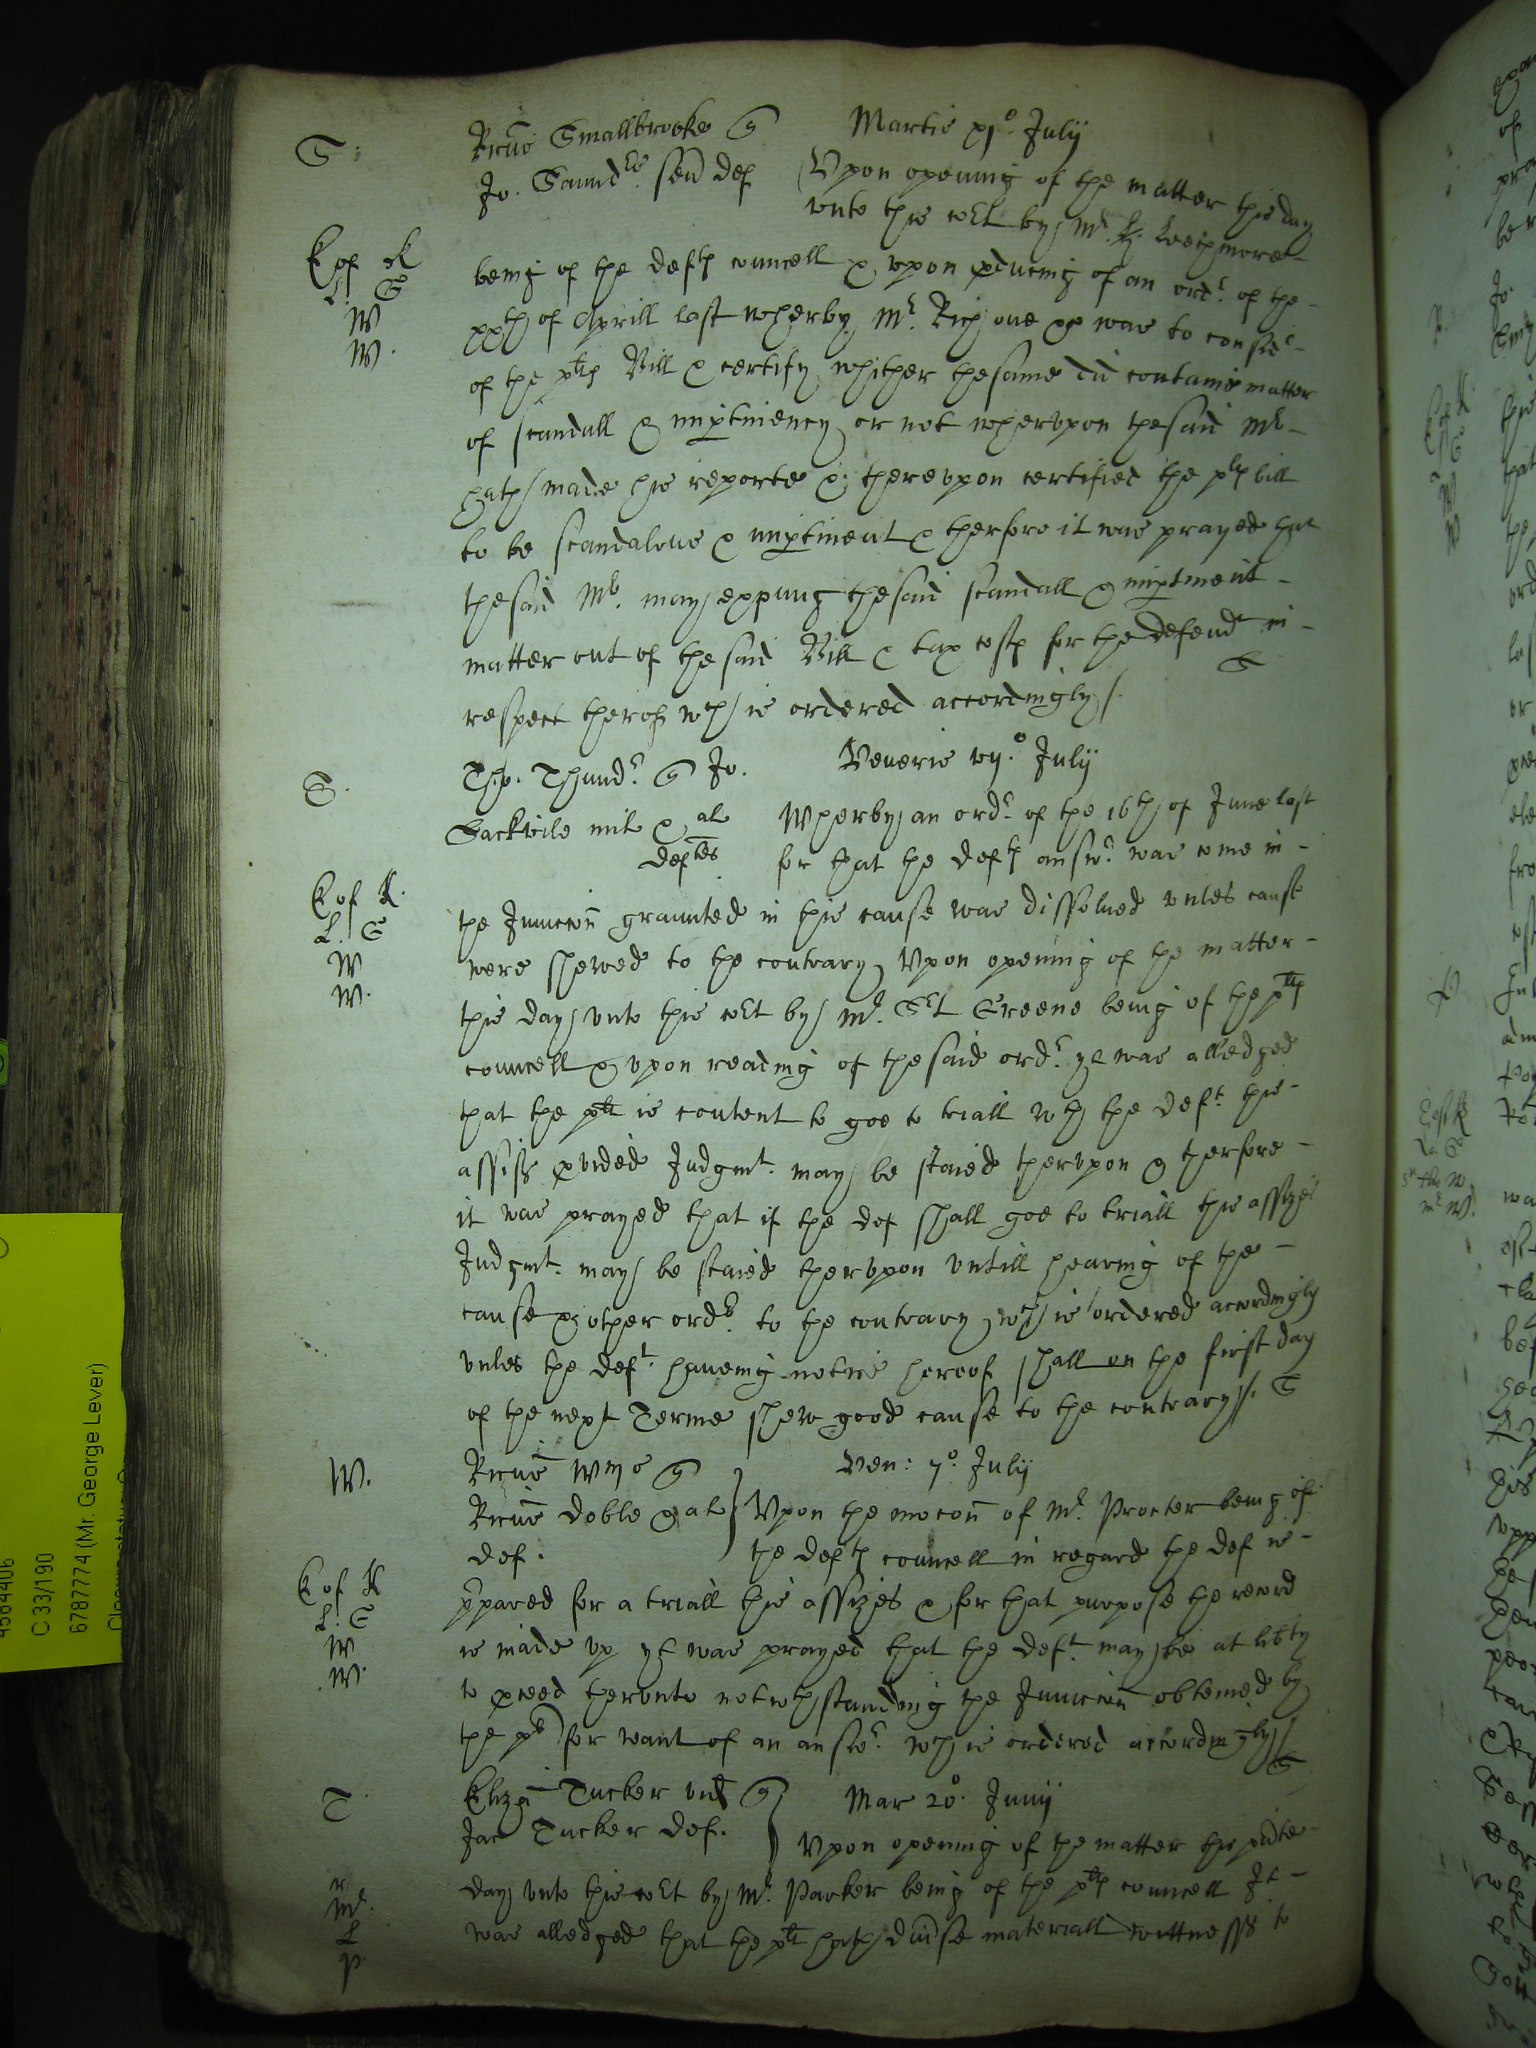 S.
Ricus Smallbrooke q
Jo. Saund^rs sen def
Martis xj^o July
Upon opening of the matter this day
unto this co^rt by M^r Leechmore
being of the def^ts councell & upon pducing of an ord^r of the
xx^th of Aprill last wherby M^r Rich one &c was to consid^r
of the p^lts Bill & certify whither thesame did containe matter
of scandall & imptinency or not wherupon thesaid M^r
hath made his reporte & thereupon certified the p^lts bill
to be scandalous & imptinent & therfore it was prayed that
thesaid M^r. may expung thesaid scandall & imptinent
matter out of thesaid Bill & tax costs for the defend^t in
respect therof w^ch is ordered accordingly /.
S
K of R
L. S
W
W.
S.
Tho. Thund^r q Jo.
Sackvile mil & al
def^tes
Veneris vij.^o July
Wherby an ord^r of the 16th of June last
for that the def^ts answ^r was come in
the Juncion graunted in this cause was dissolued unles cause
were shewed to the contrary Upon opening of the matter
this day unto this co^rt by M^r. S^rt Greene being of the p^lts
councell & upon reading of thesaid ord^r yt was alledged
that the p^lt is content to goe to triall w^th the def^t this
assiss pvided Judgm^t. may be staied therupon & therfore
it was prayed that if the def shall goe to triall this assizes
Judgm^t. may be staied therupon untill hearing of the
cause & other ord^r. to the contrary w^ch is ordered accordingly
unles the def^t. haueing notice hereof shall on the first day
of the next Terme shew good cause to the contrary /. S
K of R.
L. S
W
W.
W.
Ricus q
Ricus Doble & al
def.
Ven: 7^o. July
Upon the mocon of M^r. Procter being of
the def^ts councell in regard the def is
ppared for a triall this assizes & for that purpose the record
is made up yt was prayed that the def^t. may be at libty
to pceed therunto notw^thstanding the Juncion obteined by
the p^lt for want of an answ^r. w^ch is ordered accordingly /
S
K of R
L. S
W
W.
T
Eliza Tucker vid q
Jac Tucker def.
Mar 20^o. Junij
Upon opening of the matter this pnte
day unto this co^rt by M^r. Parker being of the p^lts councell It
was alledged that the p^lt hath diuse materiall wittnesss to
M^r.
L
P.
C 33/190
6787774 (Mr. George Lever)